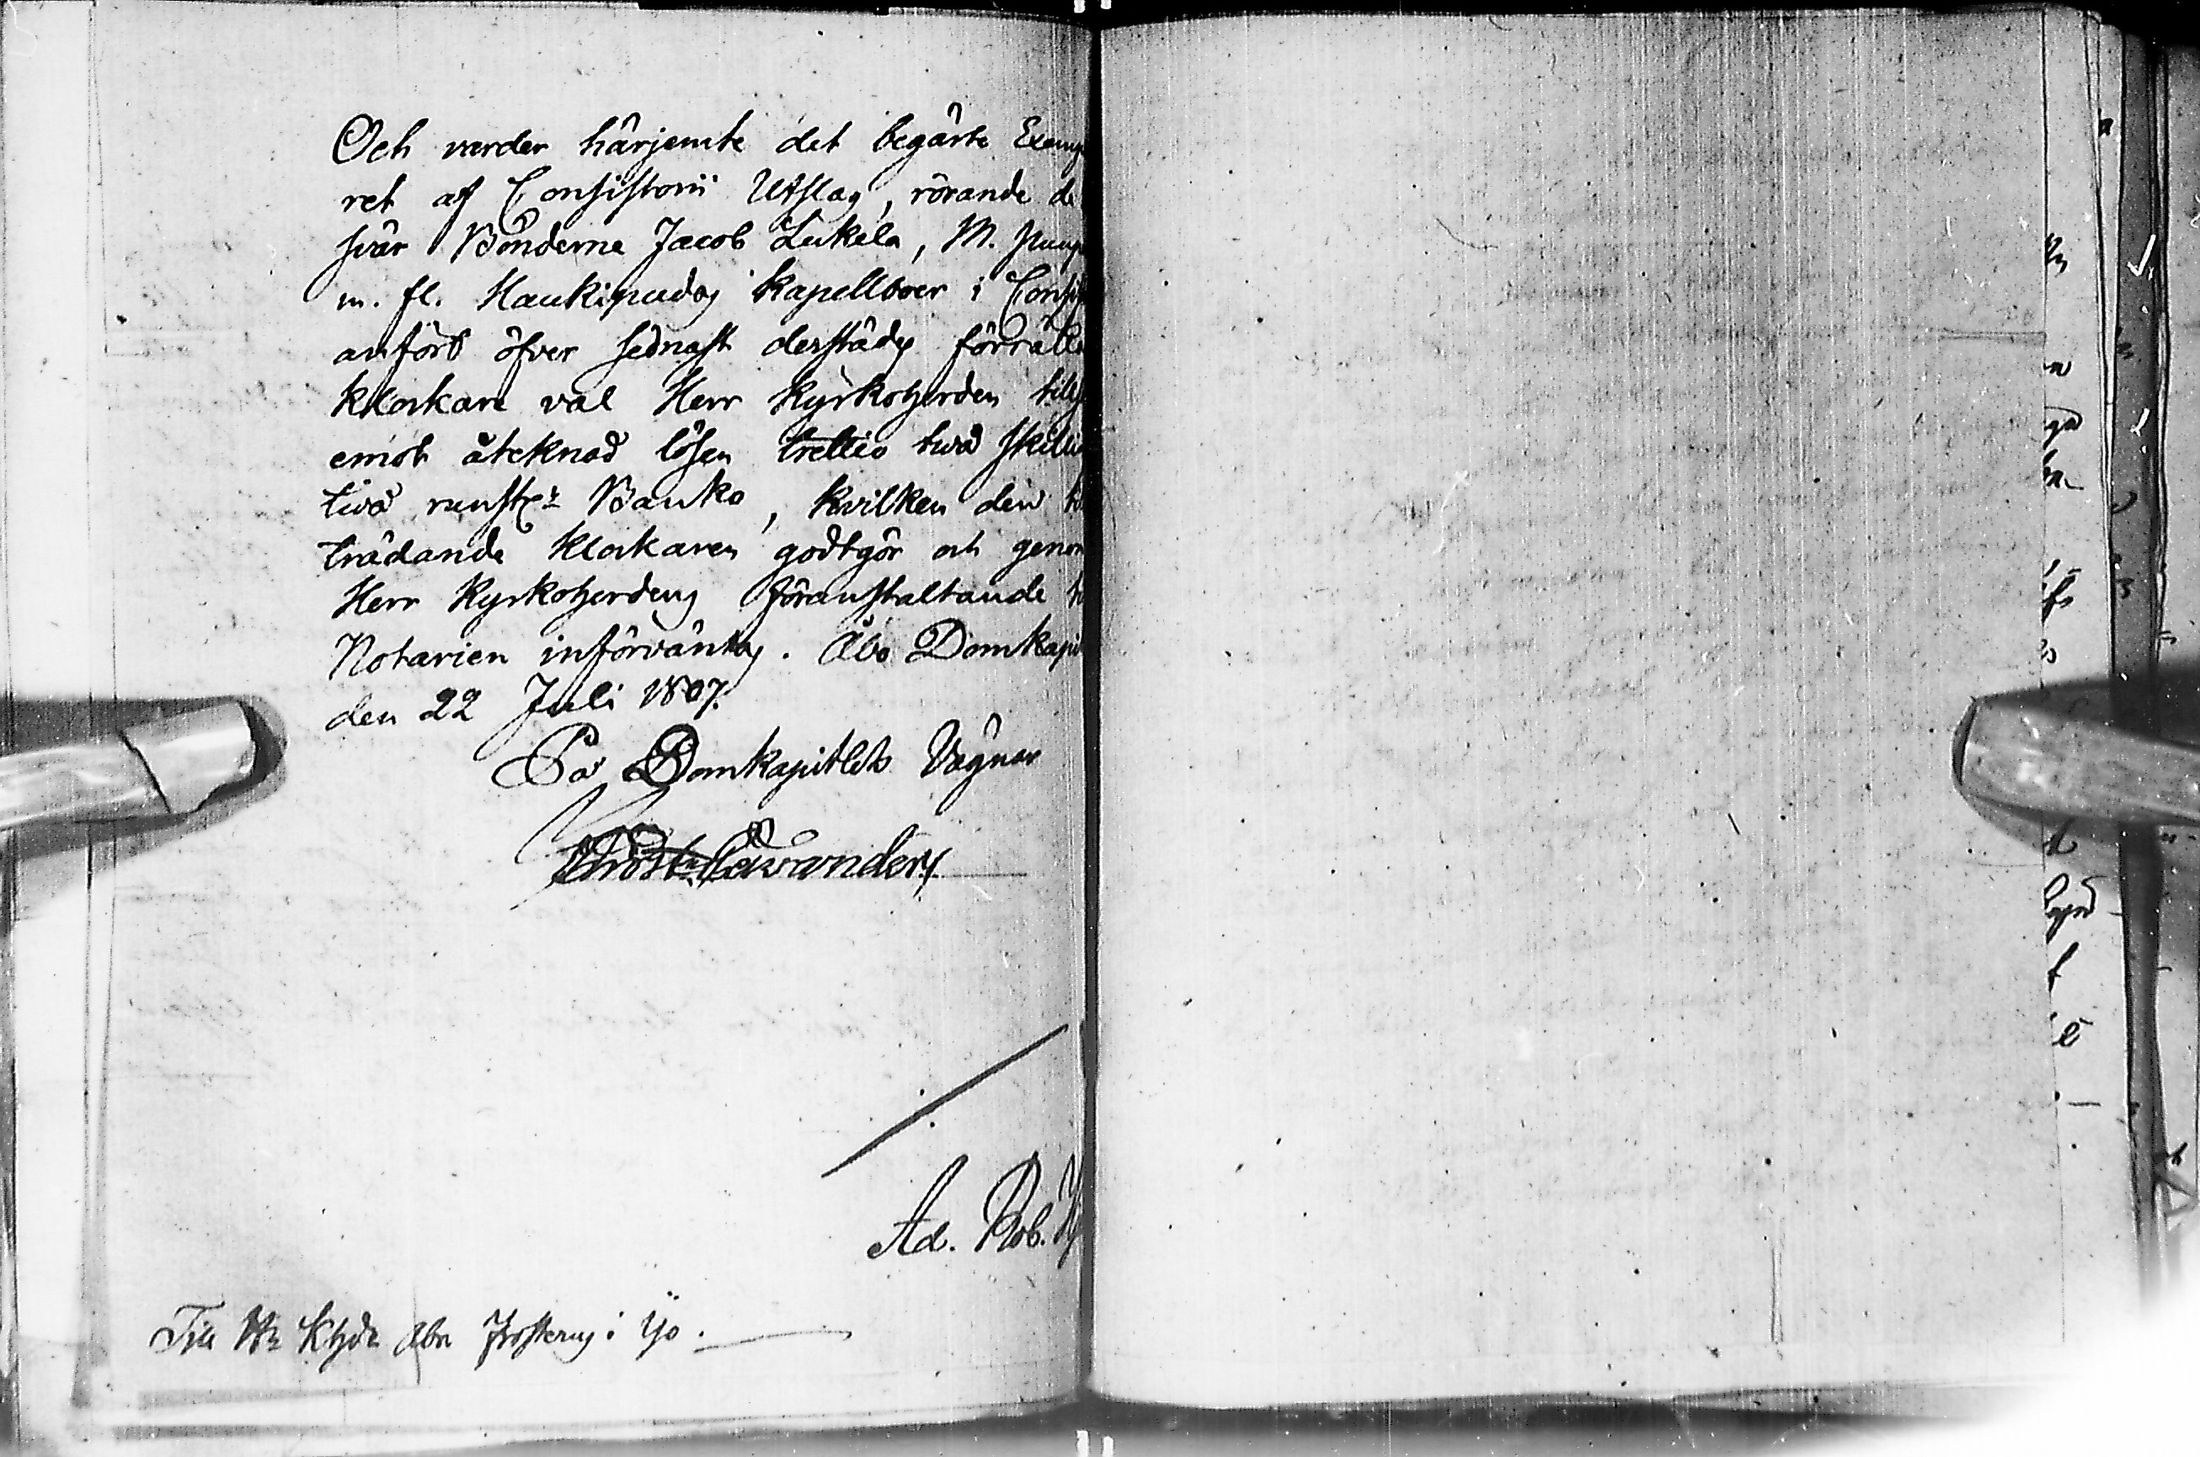 Och varder härjemte det begärte Exemp
ret af Consistorii Utslag, rörande de
svär Bönderne Jacob Lukela, M.
m. fl. Haukipudas kapellboer i Consi
anfört öfver sednast derstädes förrätt
klockare val Herr Kyrkoherden tills
emot åteknad lösen trettio två skilli
två runstr Banko, hvilken den
trädande klockaren godtgör och genom
Herr Kyrkoherdens föranstaltande
Notarien införväntas. Åbo Domkapi
den 22 Juli 1807.
På Domkapitlets Vägnar
Christ. Cavander
Ad. Rob.
Till Hr Khdn Abr Frosterus i Ijo.